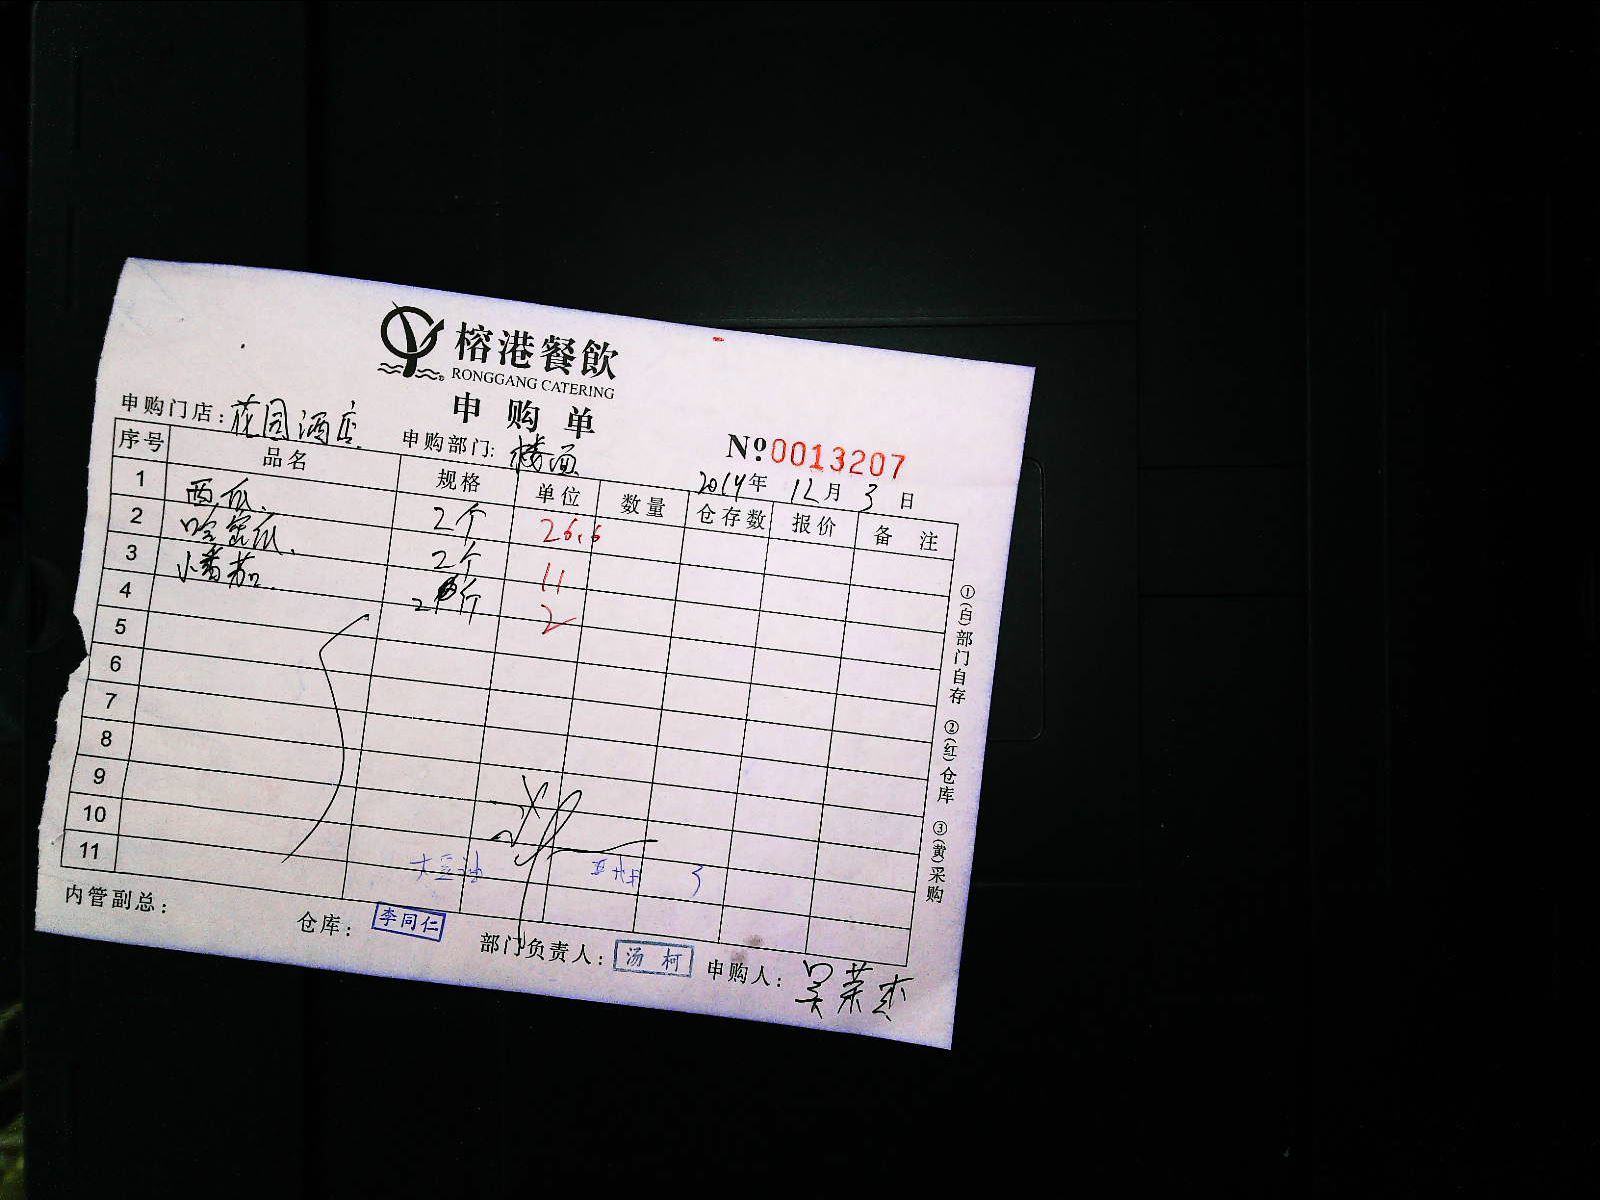 榕港餐飲
RONGGANG CATERING
申购单
申购门店:花园酒店 申购部门:楼面 №0013207
2014年12月3日
序号 品名 规格 单位 数量 仓存数 报价 备注
1 西瓜 2个 26.6
2 哈密瓜 2个 11
3 小番茄 2斤 2
4
5
6
7
8
9
10
11 大豆油 3
内管副总: 仓库:李同仁 部门负责人:汤柯 申购人:吴荣杰
①(白)部门自存 ②(红)仓库 ③(黄)采购